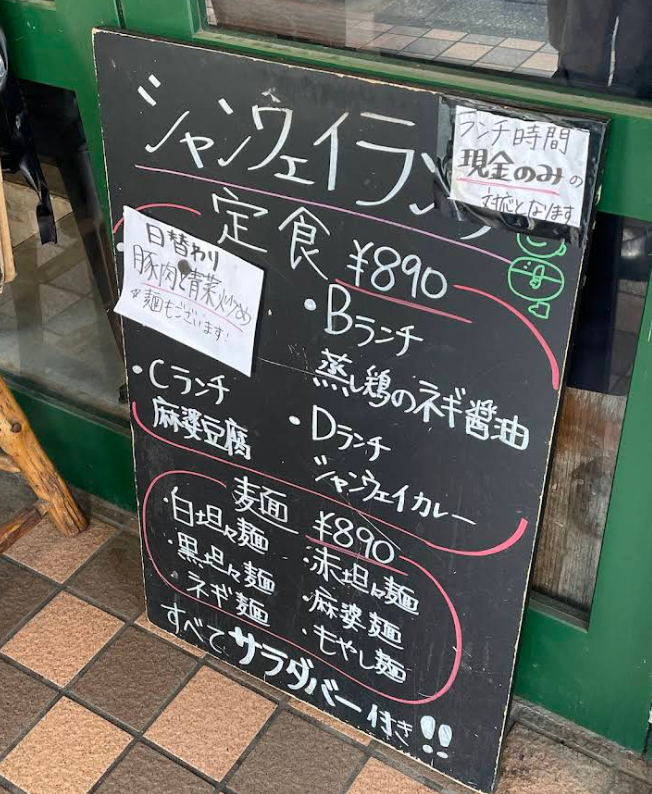 シャンウェイラン
ランチ時間
現金のみの
対応となります
定食 ¥890
日替わり
豚肉と青菜炒め
麺もございます!
・Bランチ
蒸し鶏のネギ醤油
・Cランチ
麻婆豆腐
・Dランチ
シャンウェイカレー
麺 ¥890
・白坦々麺
・赤坦々麺
・黒坦々麺
・麻婆麺
・ネギ麺
・もやし麺
すべてサラダバー付き!!